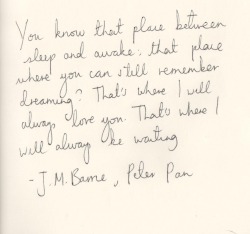 You know that place between
sleep and awake, that place
where you can still remember
dreaming? That's where I will
always love you. That's where I
will always be waiting
- J.M. Barrie, Peter Pan